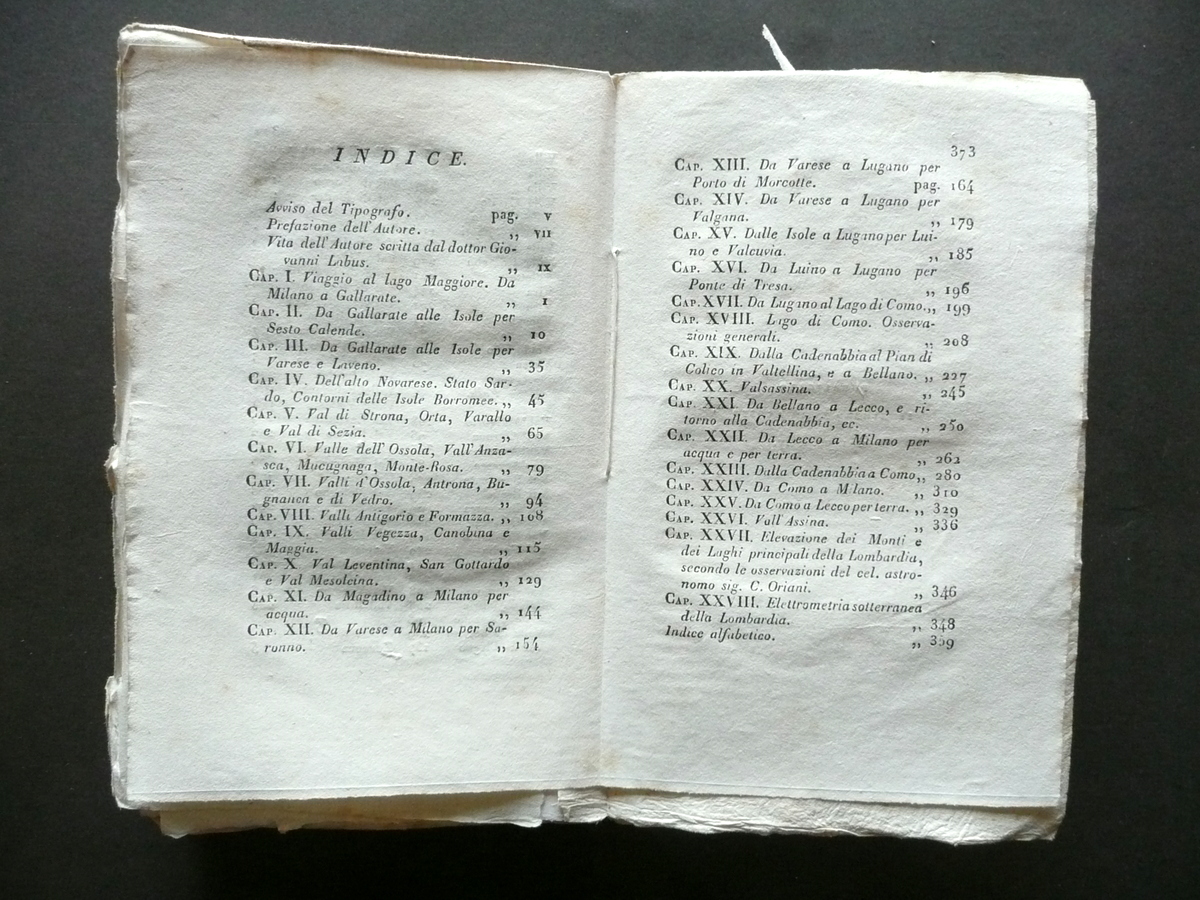 INDICE.
Avviso del Tipografo. pag. v
Prefazione dell'Autore. ,, VII
Vita dell'Autore scritta dal dottor Gio-
vanni Labus. ,, IX
CAP. I. Viaggio al lago Maggiore. Da
Milano a Gallarate. ,, 1
CAP. II. Da Gallarate alle Isole per
Sesto Calende. ,, 10
CAP. III. Da Gallarate alle Isole per
Varese e Laveno. ,, 35
CAP. IV. Dell'alto Novarese. Stato Sar-
do, Contorni delle Isole Borromee. ,, 45
CAP. V. Val di Strona, Orta, Varallo
e Val di Sezia. ,, 65
CAP. VI. Valle dell'Ossola, Vall'Anza-
sca, Macugnaga, Monte-Rosa. ,, 79
CAP. VII. Valli d'Ossola, Antrona, Bu-
gnanca e di Vedro. ,, 94
CAP. VIII. Valli Antigorio e Formazza. ,, 108
CAP. IX. Valli Vegezza, Canobina e
Maggia. ,, 115
CAP. X Val Leventina, San Gottardo
e Val Mesolcina. ,, 129
CAP. XI. Da Magadino a Milano per
acqua. ,, 144
CAP. XII. Da Varese a Milano per Sa-
ronno. ,, 154
373
CAP. XIII. Da Varese a Lugano per
Porto di Morcotte. pag. 164
CAP. XIV. Da Varese a Lugano per
Valgana. ,, 179
CAP. XV. Dalle Isole a Lugano per Lui-
no e Valcuvia. ,, 185
CAP. XVI. Da Luino a Lugano per
Ponte di Tresa. ,, 196
CAP. XVII. Da Lugano al Lago di Como. ,, 199
CAP. XVIII. Lago di Como. Osserva-
zioni generali. ,, 208
CAP. XIX. Dalla Cadenabbia al Pian di
Colico in Valtellina, e a Bellano. ,, 227
CAP. XX. Valsassina. ,, 245
CAP. XXI. Da Bellano a Lecco, e ri-
torno alla Cadenabbia, ec. ,, 250
CAP. XXII. Da Lecco a Milano per
acqua e per terra. ,, 262
CAP. XXIII. Dalla Cadenabbia a Como ,, 280
CAP. XXIV. Da Como a Milano. ,, 310
CAP. XXV. Da Como a Lecco per terra. ,, 329
CAP. XXVI. Vall'Assina. ,, 336
CAP. XXVII. Elevazione dei Monti e
dei Laghi principali della Lombardia,
secondo le osservazioni del cel. astro-
nomo sig. C. Oriani. ,, 346
CAP. XXVIII. Elettrometria sotterranea
della Lombardia. ,, 348
Indice alfabetico. ,, 359